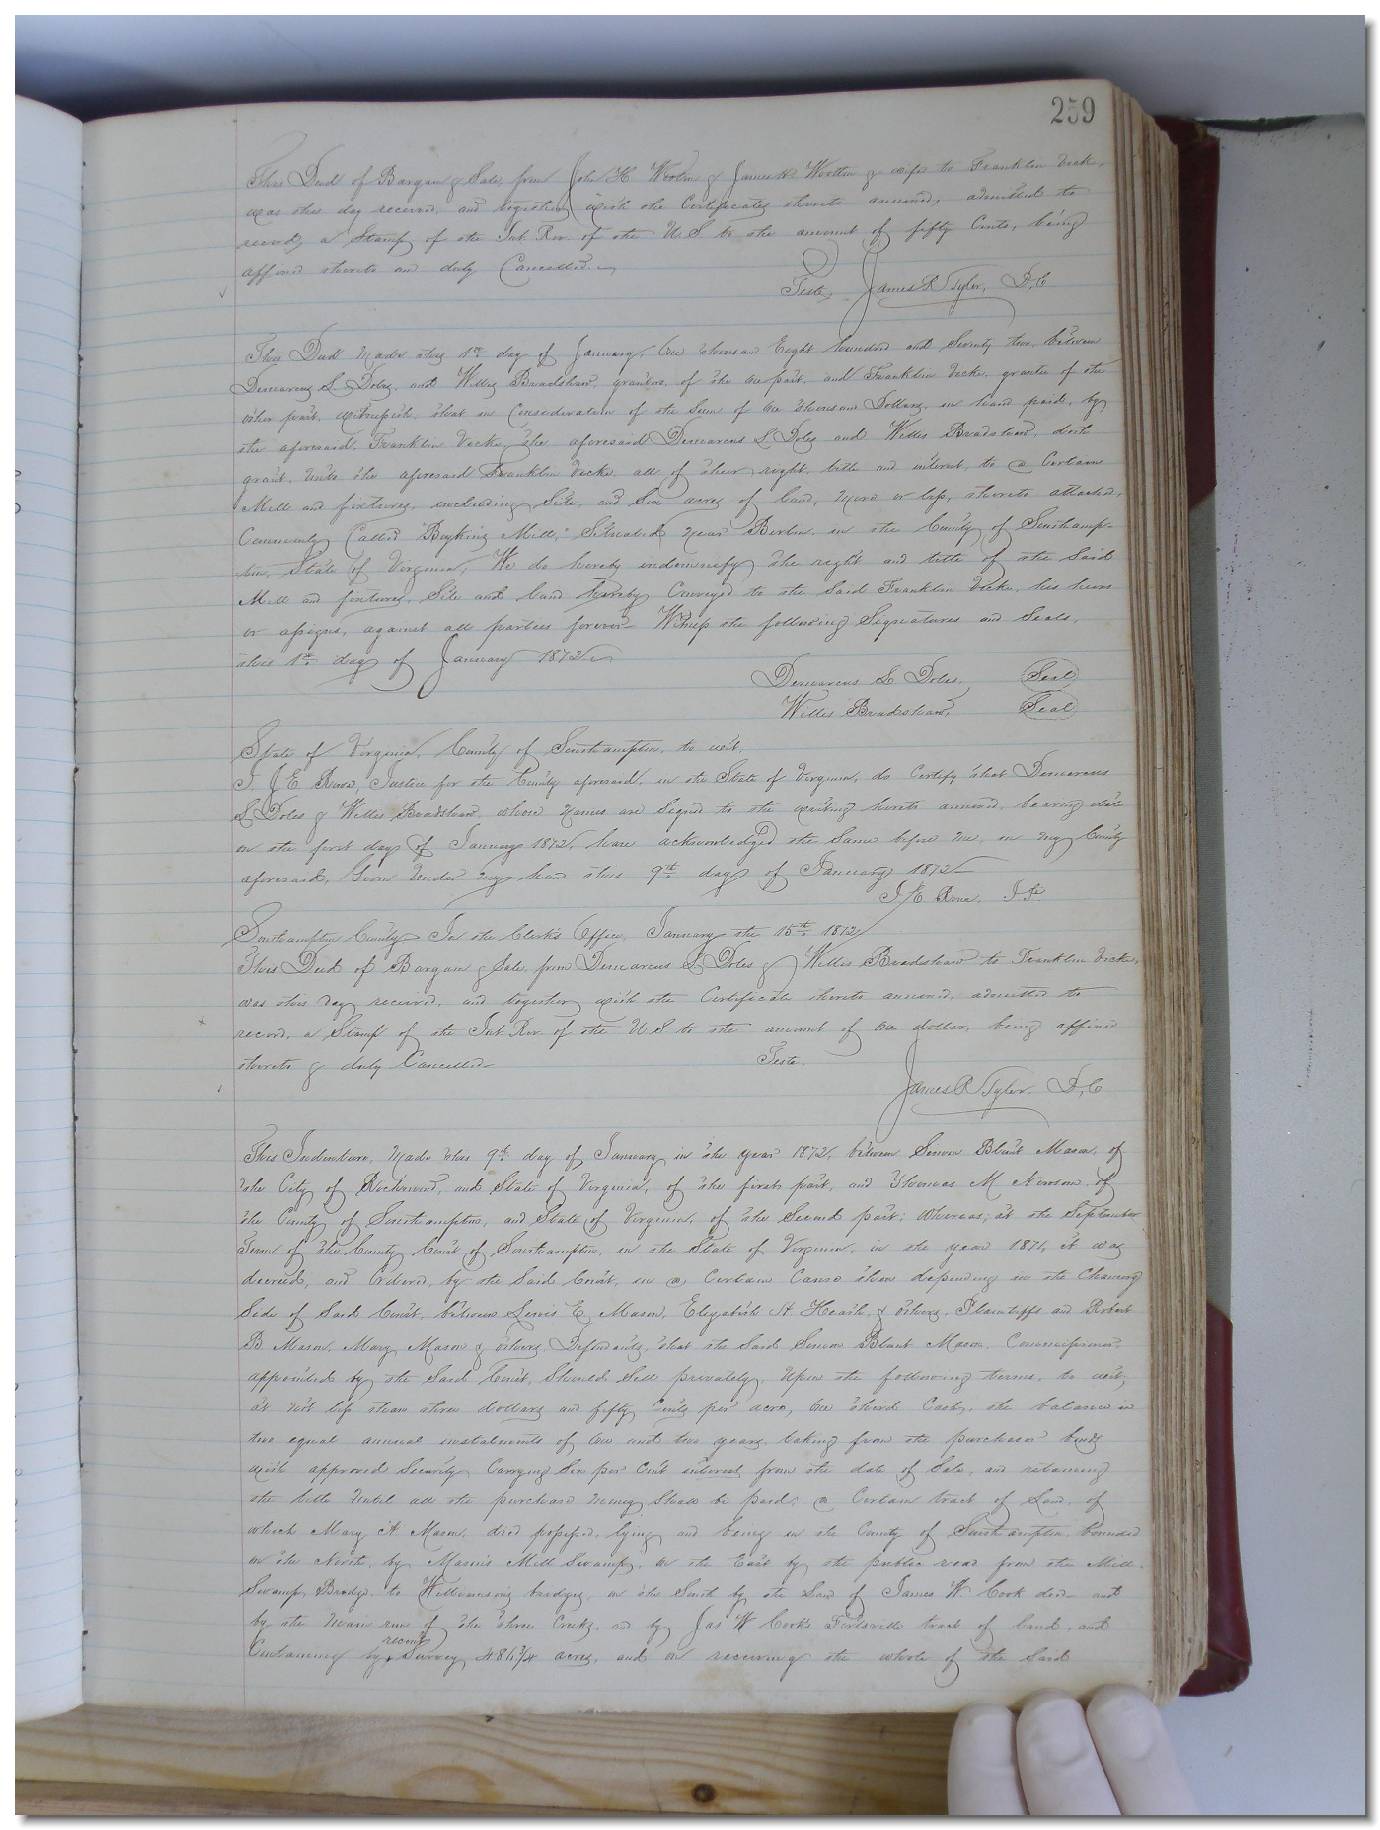 259
This Deed of Bargain & Sale, from John H Wootten & James R Wootten & wife to Franklin Vick,
was this day received, and together with the Certificates thereto annexed, admitted to
record, a Stamp of the Int. Rev. of the U.S. to the amount of fifty Cents, being
affixed thereto and duly Cancelled.
Teste, James R Tyler, D,C
This Deed made this 1st day of January, One thousand Eight hundred and Seventy two, between
Demarcus L Doles, and Willis Bradshaw, grantors, of the one part, and Franklin Vicks, grantee of the
other part, witnesseth, that in Consideration of the Sum of One thousand Dollars, in hand paid, by
the aforesaid, Franklin Vicks, the aforesaid Demarcus L Doles and Willis Bradshaw, doth
grant, unto the aforesaid Franklin Vicks, all of their right, title and interest, to a Certain
Mill and fixtures, including Site, and Six acres of land, more or less, thereto attached,
Commonly Called "Boykins Mill," Situated near Berlin, in the County of Southamp-
ton, State of Virginia, We do hereby indemnify the right and title of the Said
Mill and fixtures, Site and land hereby Conveyed to the Said Franklin Vicks, his heirs
or assigns, against all parties forever. Witness the following Signatures and Seals,
this 1st day of January 1872
Demarcus L Doles, Seal
Willis Bradshaw, Seal
State of Virginia, County of Southampton, to wit,
I, J E Rose, Justice for the County aforesaid, in the State of Virginia, do Certify that Demarcus
L Doles & Willis Bradshaw, whose names are Signed to the writing hereto annexed, bearing date
on the first day of January 1872, have acknowledged the Same before me, in my County
aforesaid, Given under my hand this 9th day of January 1872
J E Rose, J.P.
Southampton County In the Clerk's Office, January the 15th 1872
This Deed of Bargain & Sale, from Demarcus L Doles & Willis Bradshaw to Franklin Vicks,
was this day received, and together with the Certificate thereto annexed, admitted to
record, a Stamp of the Int Rev. of the U S to the amount of one dollar, being affixed
thereto & duly Cancelled
Teste.
James R Tyler. D,C
This Indenture, Made this 9th day of January in the year 1872, between Simon Blunt Mason, of
the City of Richmond, and State of Virginia, of the first part, and Thomas M Newsom, of
the County of Southampton, and State of Virginia, of the Second part; Whereas, at the September
Term of the County Court of Southampton, in the State of Virginia, in the year 1871, it was
decreed, and Ordered, by the Said Court, in a Certain Cause then depending in the Chancery
Side of Said Court, between Lewis E. Mason, Elizabeth H. Heath, & others, Plaintiffs and Robert
B. Mason, Mary Mason & others, Defendants, that the Said Simon Blunt Mason, Commissioner,
appointed by the Said Court, Should Sell privately, Upon the following terms, to wit;
at not less than three dollars and fifty Cents per acre, One third Cash, the balance in
two equal annual instalments of One and two years, taking from the purchaser bonds
with approved Security, Carrying Six per Cent interest from the date of Sale, and retaining
the title Until all the purchase money Shall be paid; a Certain tract of Land, of
which Mary A Mason, died possessed, lying and being in the County of Southampton, bounded
on the North, by Mason's Mill Swamp, on the East by the public road from the Mill
Swamp Bridge, to Williamson's bridge, on the South by the Land of James W Cook decd and
by the main run of the three Creeks, and by Jas W Cook's Fortsville tract of land, and
Containing by recent Survey, 486 3/4 acres, and on receiving the whole of the Said